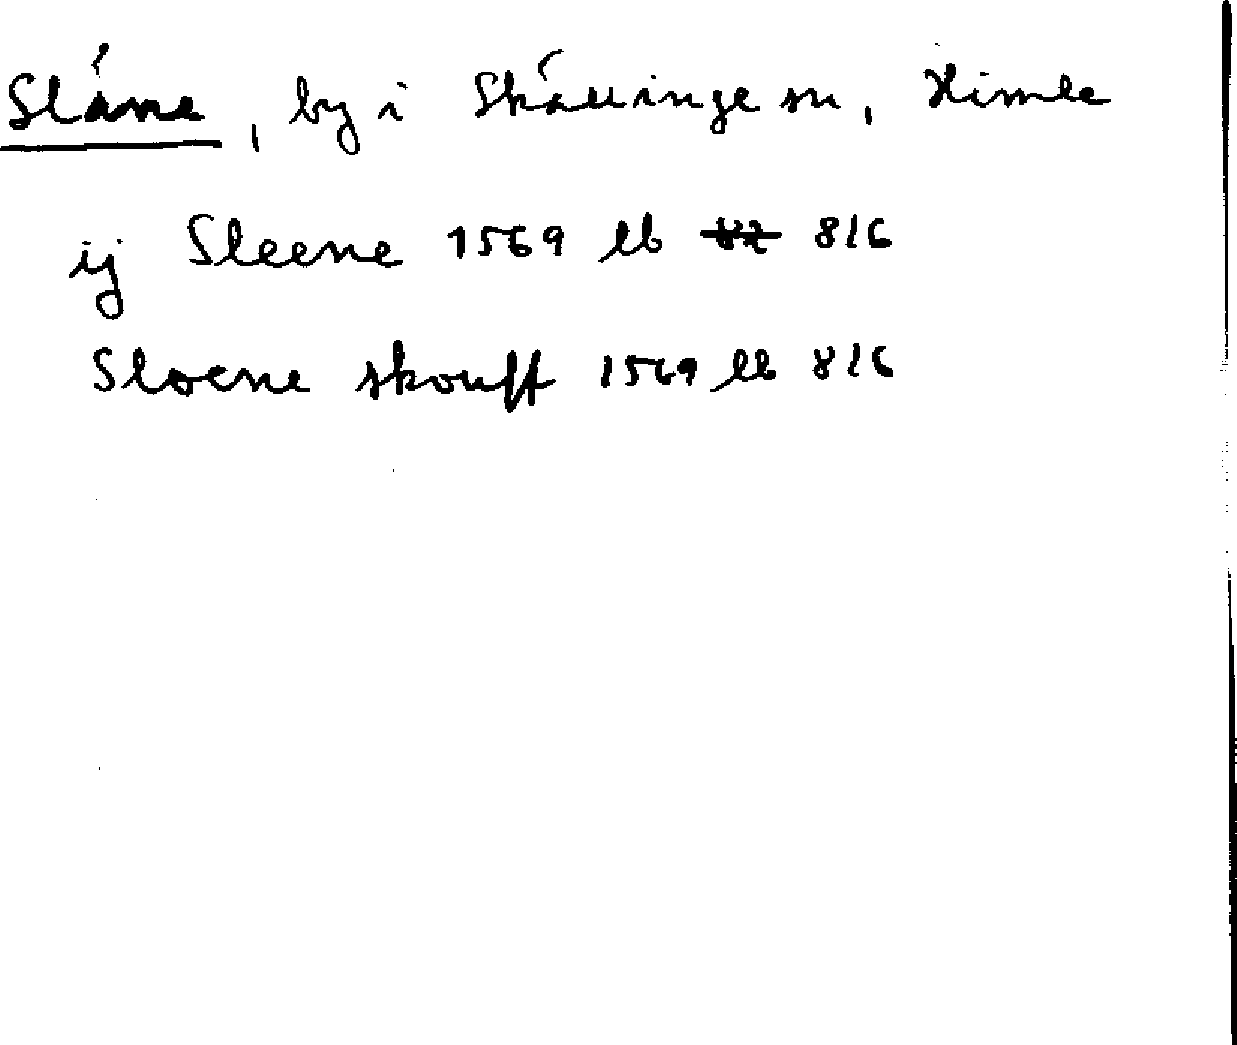 Släne, by i Skällinge sn, Himle
ij Sleene 1569 lb 816
Sloene skoufft 1569 lb 816